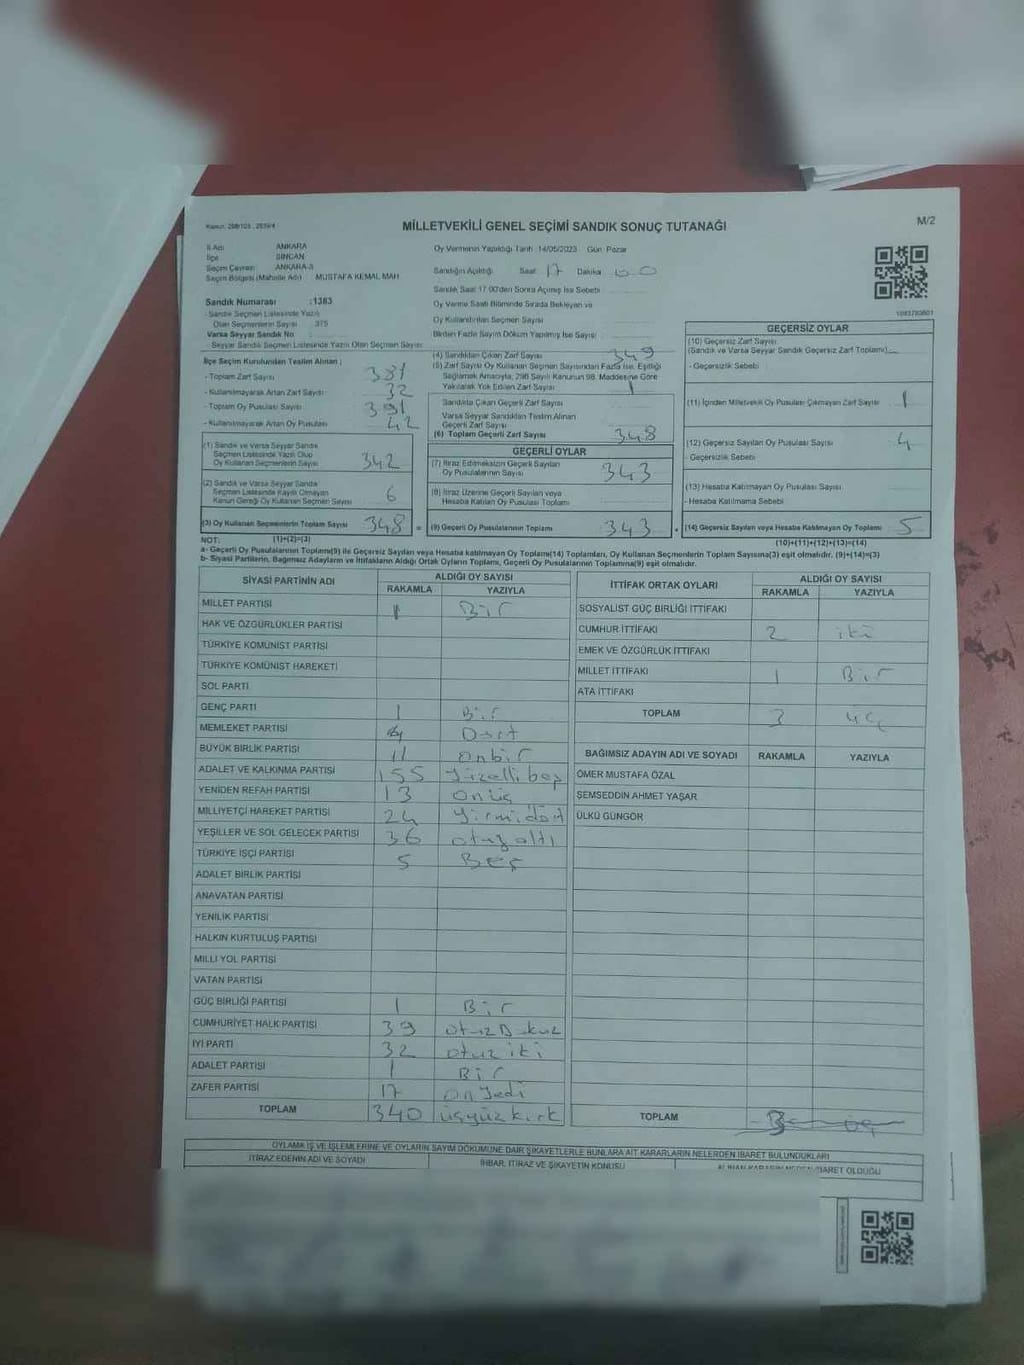 Kanun: 298/105 , 2839/4
MİLLETVEKİLİ GENEL SEÇİMİ SANDIK SONUÇ TUTANAĞI
M/2
İl Adı ANKARA
İlçe SİNCAN
Seçim Çevresi ANKARA-3
Seçim Bölgesi (Mahalle Adı) MUSTAFA KEMAL MAH
Oy Vermenin Yapıldığı Tarih 14/05/2023 Gün Pazar
Sandığın Açıldığı Saat 17 Dakika 00
Sandık Saat 17.00'den Sonra Açılmış İse Sebebi
Oy Verme Saati Bitiminde Sırada Bekleyen ve
Oy Kullandırılan Seçmen Sayısı
Birden Fazla Sayım Döküm Yapılmış İse Sayısı
Sandık Numarası :1383
- Sandık Seçmen Listesinde Yazılı
Olan Seçmenlerin Sayısı 375
Varsa Seyyar Sandık No
- Seyyar Sandık Seçmen Listesinde Yazılı Olan Seçmen Sayısı
İlçe Seçim Kurulundan Teslim Alınan ;
- Toplam Zarf Sayısı 381
- Kullanılmayarak Artan Zarf Sayısı 32
- Toplam Oy Pusulası Sayısı 391
- Kullanılmayarak Artan Oy Pusulası 42
(1) Sandık ve Varsa Seyyar Sandık
Seçmen Listesinde Yazılı Olup
Oy Kullanan Seçmenlerin Sayısı 342
(2) Sandık ve Varsa Seyyar Sandık
Seçmen Listesinde Kayıtlı Olmayan
Kanun Gereği Oy Kullanan Seçmen Sayısı 6
(3) Oy Kullanan Seçmenlerin Toplam Sayısı 348 =
(4) Sandıktan Çıkan Zarf Sayısı 349
(5) Zarf Sayısı Oy Kullanan Seçmen Sayısından Fazla İse, Eşitliği
Sağlamak Amacıyla, 298 Sayılı Kanunun 98. Maddesine Göre
Yakılarak Yok Edilen Zarf Sayısı 1
Sandıkta Çıkan Geçerli Zarf Sayısı
Varsa Seyyar Sandıktan Teslim Alınan
Geçerli Zarf Sayısı
(6) Toplam Geçerli Zarf Sayısı 348
GEÇERLİ OYLAR
(7) İtiraz Edilmeksizin Geçerli Sayılan
Oy Pusulalarının Sayısı 343
(8) İtiraz Üzerine Geçerli Sayılan veya
Hesaba Katılan Oy Pusulası Toplamı
(9) Geçerli Oy Pusulalarının Toplamı 343 +
GEÇERSİZ OYLAR
(10) Geçersiz Zarf Sayısı
(Sandık ve Varsa Seyyar Sandık Geçersiz Zarf Toplamı)
- Geçersizlik Sebebi
(11) İçinden Milletvekili Oy Pusulası Çıkmayan Zarf Sayısı 1
(12) Geçersiz Sayılan Oy Pusulası Sayısı 4
- Geçersizlik Sebebi
(13) Hesaba Katılmayan Oy Pusulası Sayısı
- Hesaba Katılmama Sebebi
(14) Geçersiz Sayılan veya Hesaba Katılmayan Oy Toplamı 5
NOT: (1)+(2)=(3)
(10)+(11)+(12)+(13)=(14)
a- Geçerli Oy Pusulalarının Toplamı(9) ile Geçersiz Sayılan veya Hesaba katılmayan Oy Toplamı(14) Toplamları, Oy Kullanan Seçmenlerin Toplam Sayısına(3) eşit olmalıdır. (9)+(14)=(3)
b- Siyasi Partilerin, Bağımsız Adayların ve İttifakların Aldığı Ortak Oyların Toplamı, Geçerli Oy Pusulalarının Toplamına(9) eşit olmalıdır.
SİYASİ PARTİNİN ADI ALDIĞI OY SAYISI
RAKAMLA YAZIYLA
MİLLET PARTİSİ 1 Bir
HAK VE ÖZGÜRLÜKLER PARTİSİ
TÜRKİYE KOMÜNİST PARTİSİ
TÜRKİYE KOMÜNİST HAREKETİ
SOL PARTİ
GENÇ PARTİ 1 Bir
MEMLEKET PARTİSİ 4 Dört
BÜYÜK BİRLİK PARTİSİ 11 onbir
ADALET VE KALKINMA PARTİSİ 155 yüzellibeş
YENİDEN REFAH PARTİSİ 13 onüç
MİLLİYETÇİ HAREKET PARTİSİ 24 yirmidört
YEŞİLLER VE SOL GELECEK PARTİSİ 36 otuzaltı
TÜRKİYE İŞÇİ PARTİSİ 5 Beş
ADALET BİRLİK PARTİSİ
ANAVATAN PARTİSİ
YENİLİK PARTİSİ
HALKIN KURTULUŞ PARTİSİ
MİLLİ YOL PARTİSİ
VATAN PARTİSİ
GÜÇ BİRLİĞİ PARTİSİ 1 Bir
CUMHURİYET HALK PARTİSİ 39 otuzDokuz
İYİ PARTİ 32 otuziki
ADALET PARTİSİ 1 Bir
ZAFER PARTİSİ 17 onyedi
TOPLAM 340 üçyüzkırk
İTTİFAK ORTAK OYLARI ALDIĞI OY SAYISI
RAKAMLA YAZIYLA
SOSYALİST GÜÇ BİRLİĞİ İTTİFAKI
CUMHUR İTTİFAKI 2 iki
EMEK VE ÖZGÜRLÜK İTTİFAKI
MİLLET İTTİFAKI 1 Bir
ATA İTTİFAKI
TOPLAM 3 üç
BAĞIMSIZ ADAYIN ADI VE SOYADI RAKAMLA YAZIYLA
ÖMER MUSTAFA ÖZAL
ŞEMSEDDİN AHMET YAŞAR
ÜLKÜ GÜNGÖR
TOPLAM
OYLAMA İŞ VE İŞLEMLERİNE VE OYLARIN SAYIM DÖKÜMÜNE DAİR ŞİKAYETLERLE BUNLARA AİT KARARLARIN NELERDEN İBARET BULUNDUKLARI
İTİRAZ EDENİN ADI VE SOYADI İHBAR, İTİRAZ VE ŞİKAYETİN KONUSU